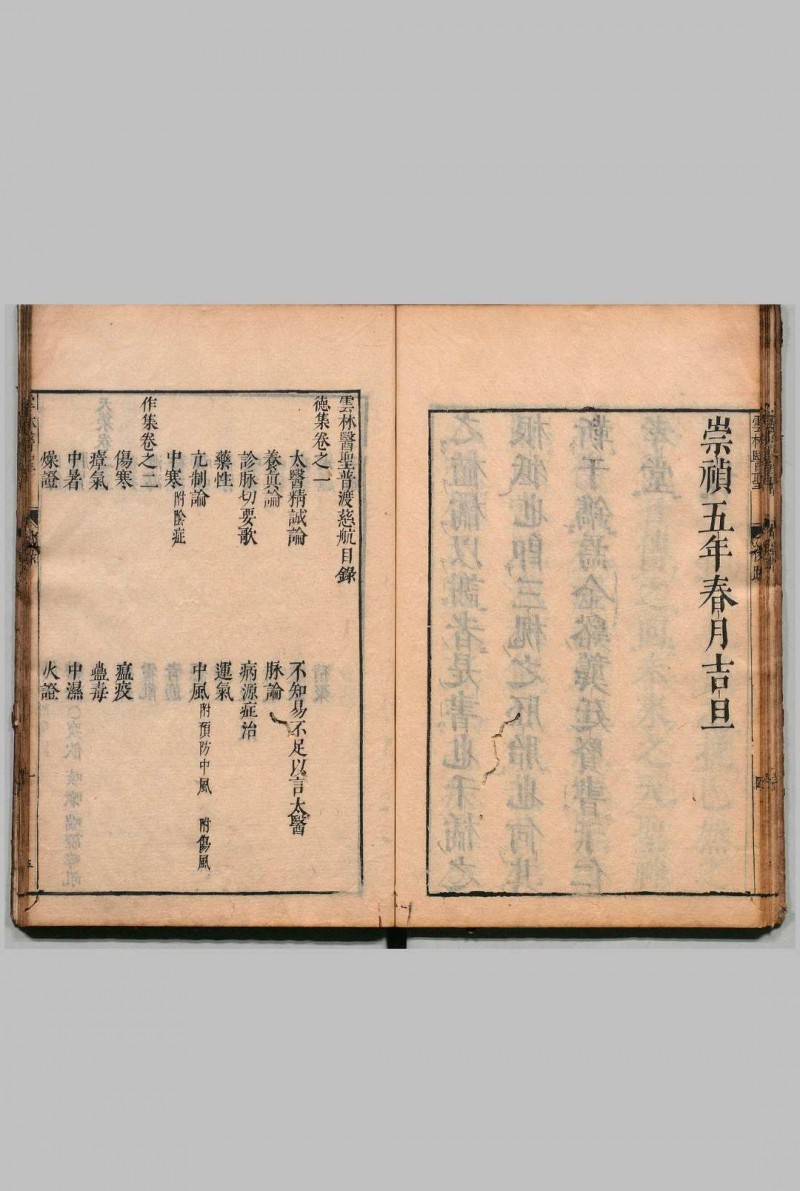 崇禎五年春月吉旦
雲林醫聖普渡慈航目錄
德集卷之一
太醫精誠論 不知易不足以言太醫
養真論 脉論
診脉切要歌 病源症治
藥性 運氣
亢制論 中風附預防中風 附傷風
中寒附陰症
作集卷之二
傷寒 瘟疫
瘴氣 蠱毒
中暑 中濕
燥證 火證